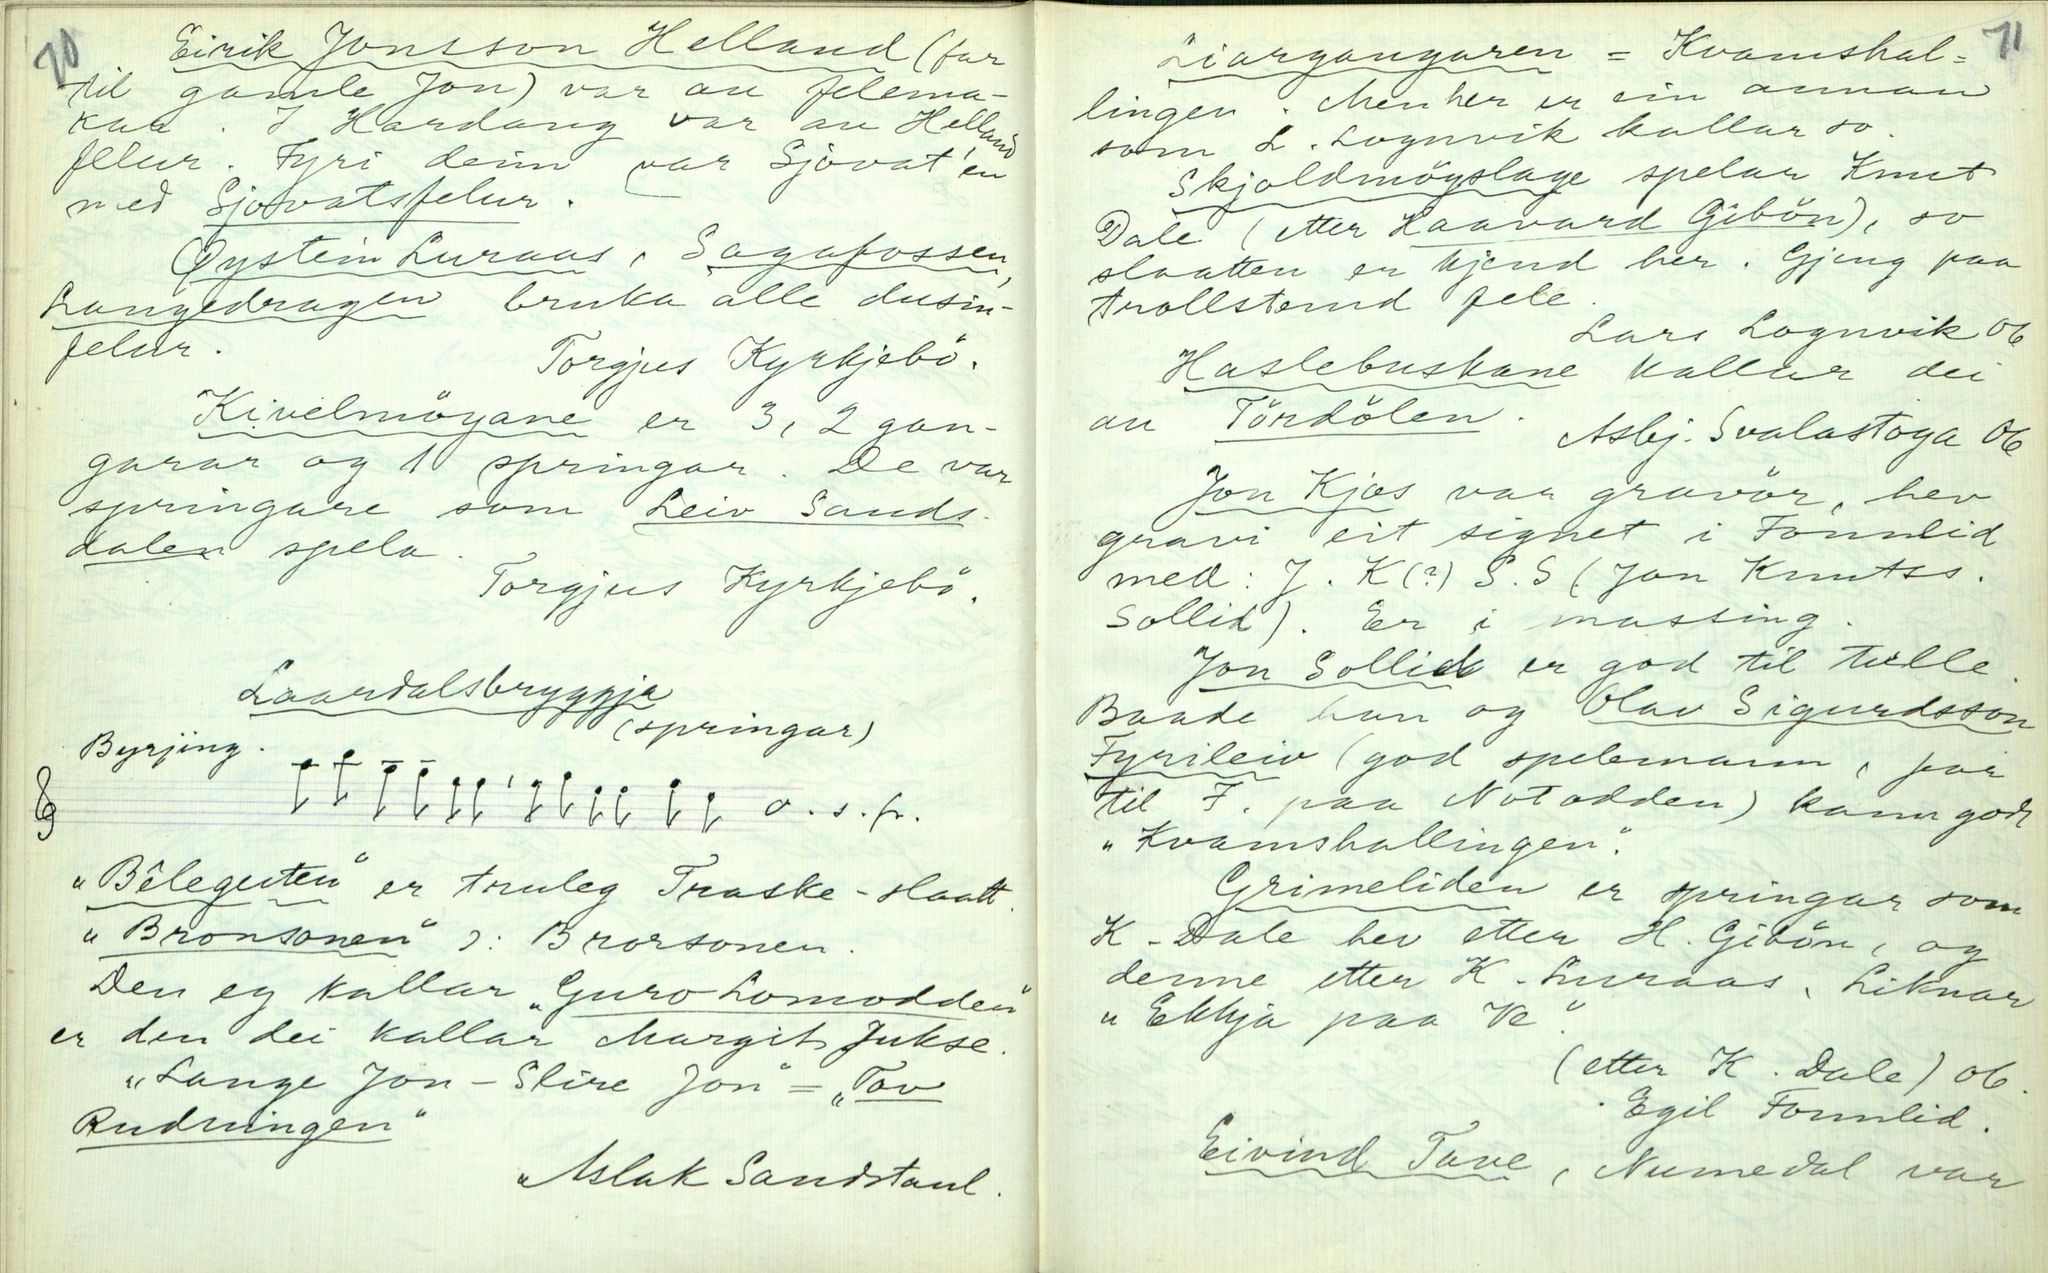 70
Eirik Jonsson Helland (far
til gamle Jon) var au felema-
kar. I Hardang var au Helland
felur. Fyri deim var Sjovat 'en
med Sjovatsfelur.
Øystein Luraas, Sagafossen,
Langedragen bruka alle dusin-
felur.
Torgjus Kyrkjebö.
Kivelmöyane er 3, 2 gan-
garar og 1 springar. De var
springare som Leiv Sands-
dalen spela.
Torgjus Kyrkjebö.
Laardalsbryggja
(springar)
Byrjing.
o. s. fr.
"Bêleguten" er truleg Traske-slaatt.
"Bronsonen" ɔ: Brorsonen.
Den eg kallar "Guro Lomodden"
er den dei kallar Margit Jukse.
"Lange Jon - Slire Jon" = "Tov
Rudningen"
Aslak Sandstaul.
71
Liargangaren = Kvamshal=
lingen. Men her er ein annan
som L. Lognvik kallar so.
Skjoldmöyslage spelar Knut
Dale (etter Haavard Gibön), so
slaatten er kjend her. Gjeng paa
trollstemd fele.
Lars Lognvik 06
Haslebuskane kallar dei
au Tördölen.
Asbj. Svalastoga 06
Jon Kjos var gravör, hev
gravi eit signet i Fonnlid
med: J. K(?) S. S (Jon Knutss.
Sollid). Er i massing.
Jon Sollid er god til tulle.
Baade han og Olav Sigurdsson
Fyrileiv (god spelemann, far
til F. paa Notodden) kann godt
"Kvamshallingen".
Grimeliden er springar som
K. Dale hev etter H. Gibön, og
denne etter K. Luraas. Liknar
"Ekkja paa Ve".
(etter K. Dale) 06.
Egil Fonnlid.
Eivind Tave, Numedal var